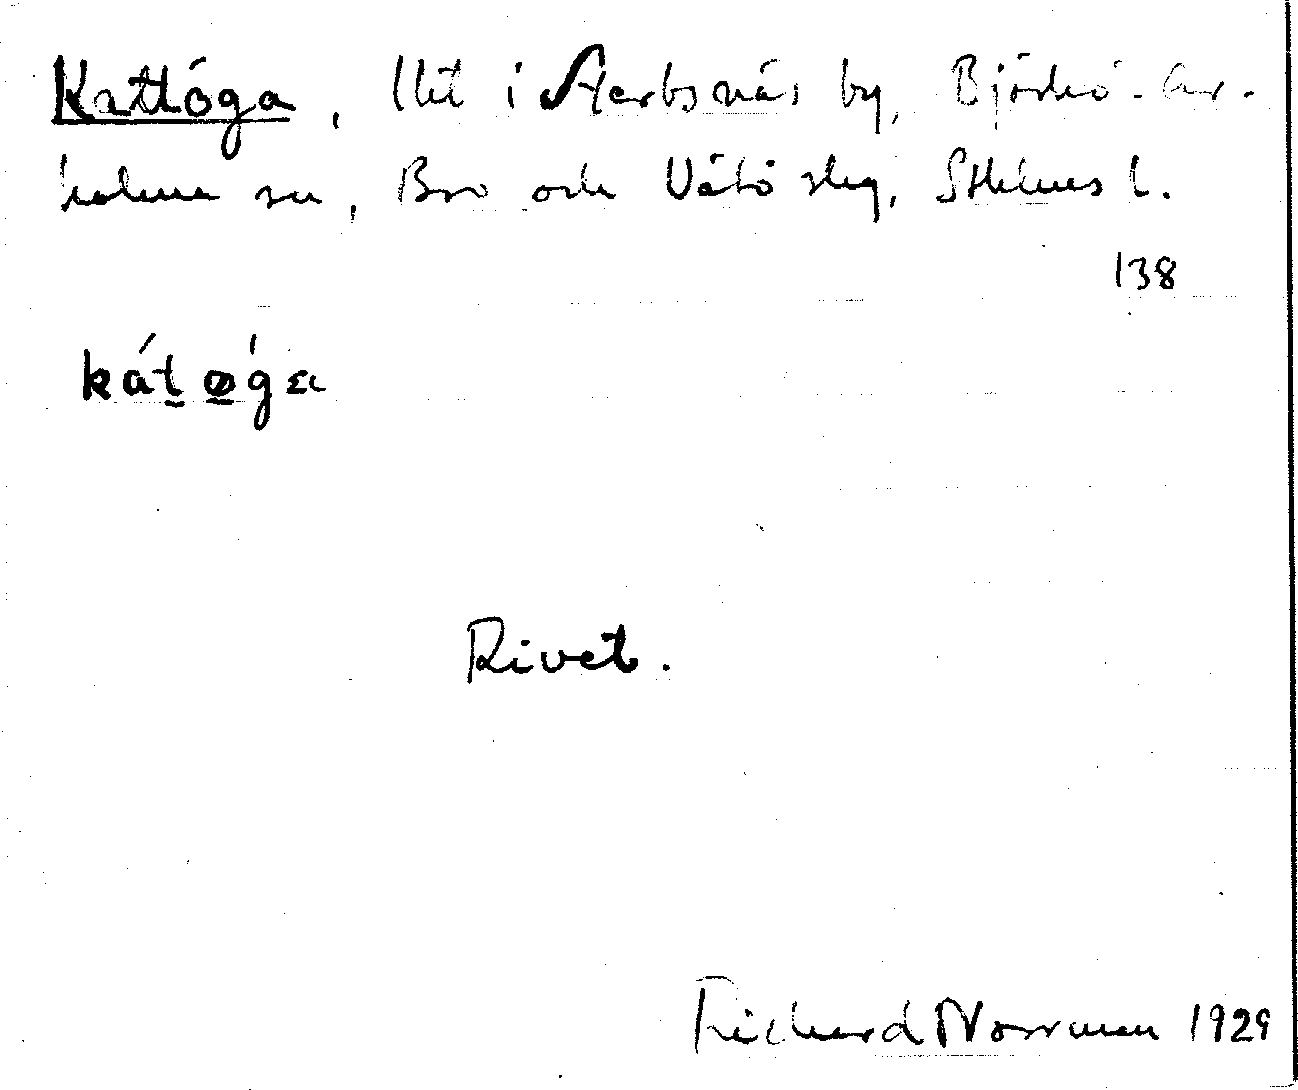 Kattöga, lht i Herbsnäs by, Björkö-Ar-
holma sn, Bro och Vätö skg, Sthlms l.
138
kátøga
Rivet.
Richard Norrman 1929